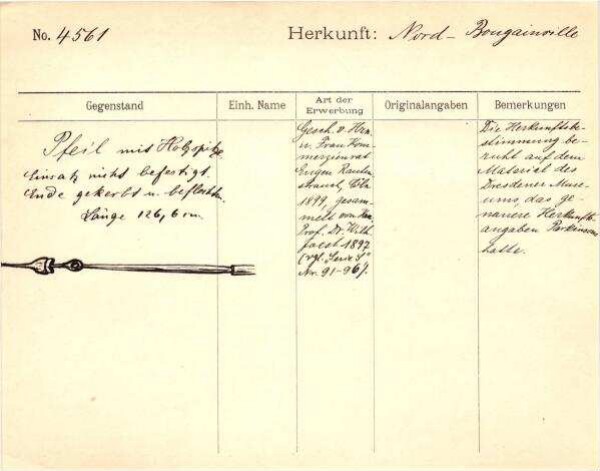 No. 4561
Herkunft: Nord-Bougainville
Gegenstand
Einh. Name
Art der Erwerbung
Originalangaben
Bemerkungen
Pfeil mit Holzspitze
Einsatz nicht befestigt.
Ende gekerbt u. beflochten.
Länge 126,6 cm.
Gesch. v. Hrn.
u. Frau Kom-
merzienrat
Eugen Rauten-
strauch, Cöln
1899, gesam-
melt von Hrn.
Prof. Dr. Wilh.
Joest 1897
(vgl. Serie S"
Nr. 91-96).
Die Herkunftsbe-
stimmung be-
ruht auf dem
Material des
Dresdener Muse-
ums, das ge-
nauere Herkunfts-
angaben Parkinsons
hatte.